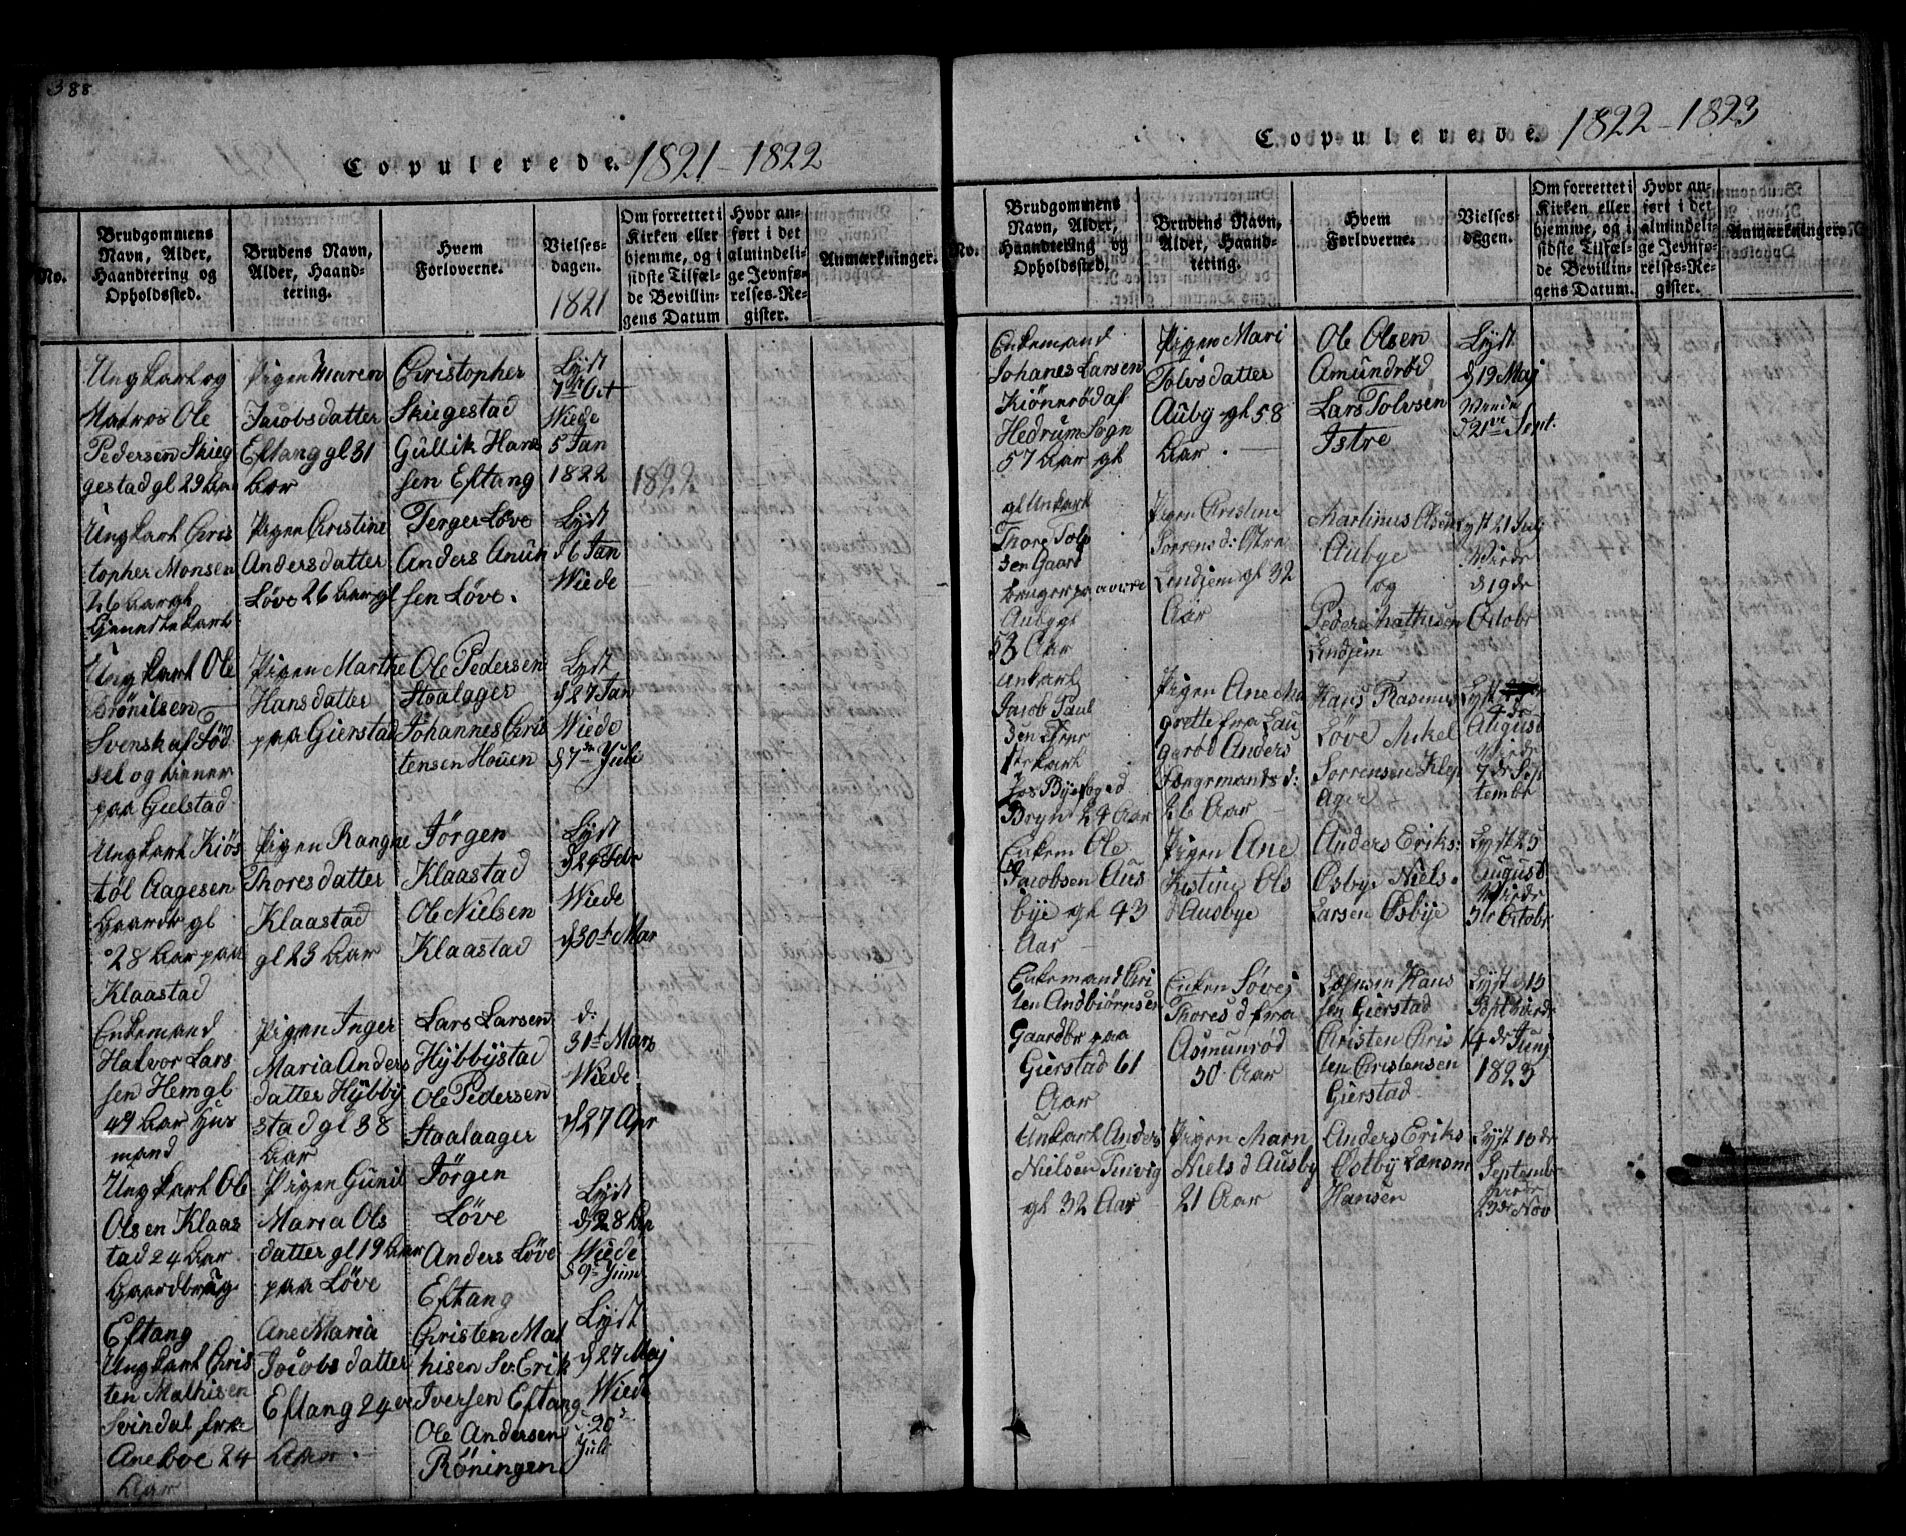 388
Copulerede. 1821-1822
No.
Brudgommens
Navn, Alder,
Haandtering og
Opholdssted.
Brudens Navn,
Alder, Haand-
tering.
Hvem
Forloverne.
Vielses-
dagen.
1821
Om forrettet i
Kirken eller
hjemme, og i
sidste Tilfæl-
de Bevillin-
gens Datum
Hvor an-
ført i det
almindeli-
ge Jevnfø-
relses-Re-
gister.
Anmærkninger.
Ungkarl og
Matros Ole
Pedersen Skieg
gestad gl 29 Aar
Pigen Maren
Jacobsdatter
Eftang gl 31
Aar
Christopher
Skiegestad
Gullik Han
sen Eftang
Lyst
7de Oct
Wiede
5 Jan
1822
1822
Ungkarl Chris
topher Monsen
26 Aar gl
Pigen Christine
Andersdatter
Løve 26 Aar gl
Terger Løve
Anders Anun
sen Løve.
Lyst
d 6 Jan
Wiede
Ungkarl Ole
Svensk af Fød
sel og tiener
paa Gielstad
Pigen Marthe
Hansdatter
paa Gierstad
Ole Pedersen
Haalager
Johannes Chris
tensen Houen
Lyst
d 27 Jan
Wiede
d 7 Juli
Ungkarl Kiøs
tøl Aagesen
Gaardb gl
28 Aar paa
Klaastad
Pigen Rangne
Thoresdatter
Klaastad
gl 23 Aar
Jörgen
Klaastad
Ole Nielsen
Klaastad
Lyst
d 24 Febr
Wiede
d 30te Mar
Enkemand
Halvor Lars
sen Hem gl
49 Aar Hus
mand
Pigen Inger
Maria Anders
datter Hÿbbÿ
stad gl 38
Aar
Lars Larsen
Hÿbbÿstad
Ole Pedersen
Haalaager
d:
31te Mars
Wiede
d 27 Apr
Ungkarl Ole
Olsen Klaas
tad 24 Aar
Gaardbrug
Eftang
Pigen Gunil
Maria Ols
datter gl 19 Aar
paa Løve
Jörgen
Løve
Anders Løve
Eftang
Lyst
d 28 Apr
Wiede
d 9 Juni
Ungkarl Chris
ten Mathisen
Svindal fra
Aneboe 24
Aar
Ane Maria
Jacobsdatter
Eftang 24
Aar.
Christen Mat
hisen Sv. Erik
Iversen Eftang
Ole Andersen
Röningen
Lyst
d 27 Maj
Wiede
20
Juli
Copulerede. 1822-1823
No.
Brudgommens
Navn, Alder,
Haandtering og
Opholdssted.
Brudens Navn,
Alder, Haand-
tering.
Hvem
Forloverne.
Vielses-
dagen.
Om forrettet i
Kirken eller
hjemme, og i
sidste Tilfæl-
de Bevillin-
gens Datum.
Hvor an-
ført i det
almindeli-
ge Jevnfø-
relses-Re-
gister.
Anmærkninger.
Enkemand
Johanes Larsen
Kiönnröd af
Hedrum Sogn
57 Aar gl
Pigen Mari
Tolvsdatter
Auby gl 58
Aar.
Ole Olsen
Amundröd
Lars Tolvsen
Istre
Lyst
d 19 Maj
Wiede
d 21 Sept.
gl Unkarl
Thore Tols
sen Gaard
bruger paa øvre
Auby gl
53 Aar
Pigen Christine
Sörrens d: Østre
Lendjem gl 32
Aar
Martinus Olsen
Aubye
og
Peder Mathisen
Lendjem
Lyst 21 Julj
Wiede
d 19de
Octobr
unkarl
Jacob Paul
sen
hos Byefoged
Bryn 24 Aar
Pigen Ane Ma
grette fra Lau
geröd Anders
Færgemands d:
26 Aar
Hans Rasmus
Løve Mikel
Sörrensen Klep
Ager
Lyst
4de
August
Wiede
7de Sep
tembr
Enkem Ole
Jacobsen Aus
bye gl 43
Aar
Pigen Ane
Kistine Ols
d Ausbye
Anders Eriks:
Østbye Niels
Larsen Østbye
Lyst 25
August
Wiede
Octobr
Enkemand Chri
ten Andbiörnsen
Gaardbr paa
Gierstad 61
Aar
Enken Søvej
Thores d fra
Asmunröd
50 Aar
Hans
sen Gierstad
Kristen Cris
ten Christensen
Gierstad
Lyst d 15
Sept
14de Junj
1823
Unkarl Anders
Nielsen Tenvig
gl 32 Aar
Pigen Marn
Niels d Ausby
21 Aar
Anders Eriks
Østby Lænsm
Hansen
Lyst 10de
Septembr
23de Nov